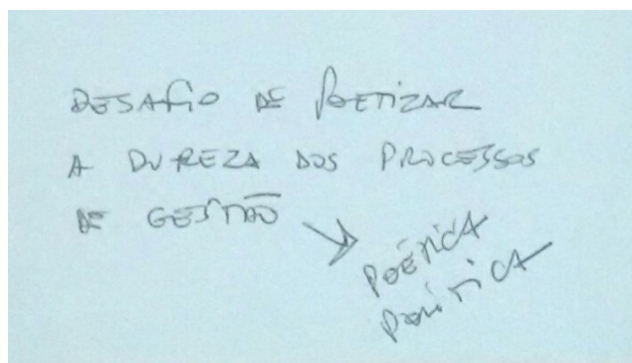 DESAFIO DE POETIZAR
A DUREZA DOS PROCESSOS
DE GESTÃO
POÉTICA
POLÍTICA